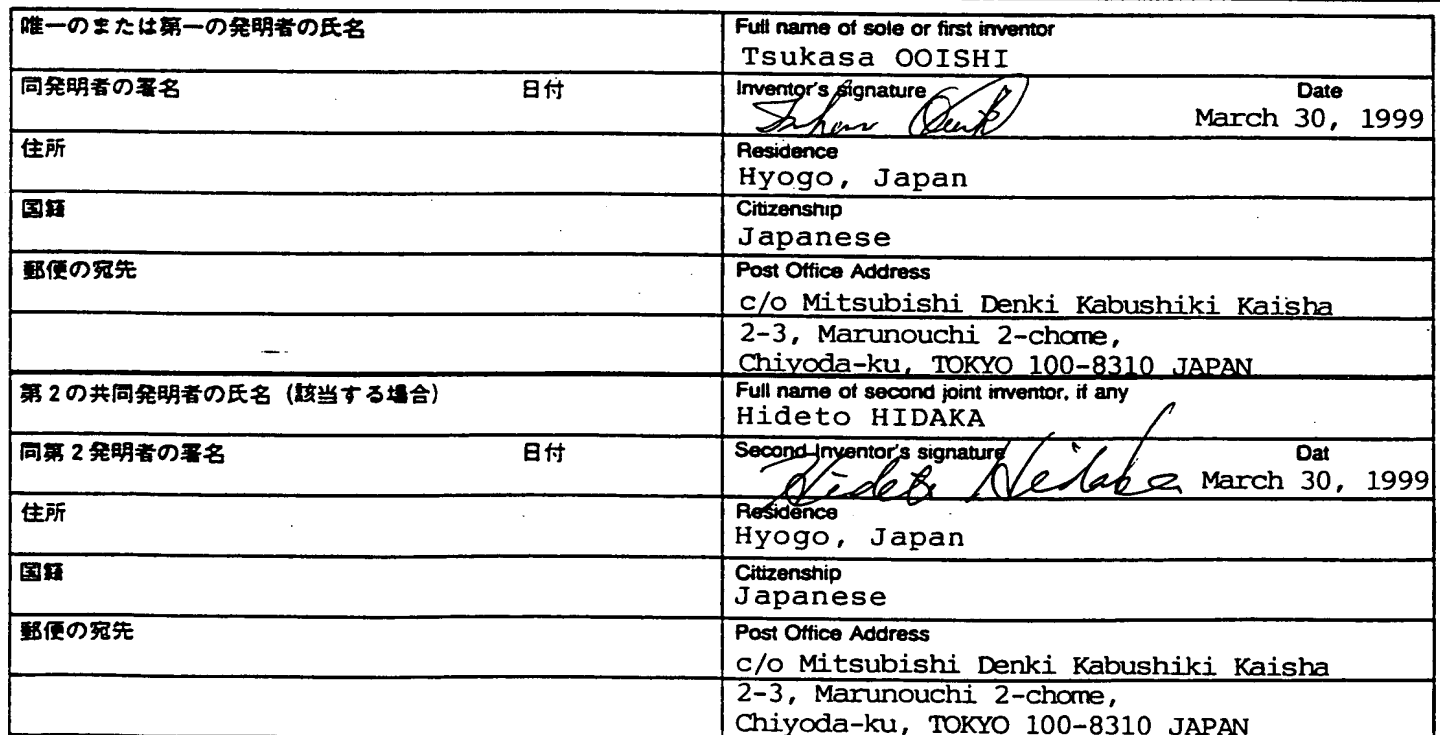 唯一のまたは第一の発明者の氏名
Full name of sole or first inventor
Tsukasa OOISHI
同発明者の署名 日付
Inventor's signature Date
March 30, 1999
住所
Residence
Hyogo, Japan
国籍
Citizenship
Japanese
郵便の宛先
Post Office Address
c/o Mitsubishi Denki Kabushiki Kaisha
2-3, Marunouchi 2-chome,
Chiyoda-ku, TOKYO 100-8310 JAPAN
第2の共同発明者の氏名（該当する場合）
Full name of second joint inventor, if any
Hideto HIDAKA
同第2発明者の署名 日付
Second Inventor's signature Dat
Hideto Hidaka March 30, 1999
住所
Residence
Hyogo, Japan
国籍
Citizenship
Japanese
郵便の宛先
Post Office Address
c/o Mitsubishi Denki Kabushiki Kaisha
2-3, Marunouchi 2-chome,
Chiyoda-ku, TOKYO 100-8310 JAPAN